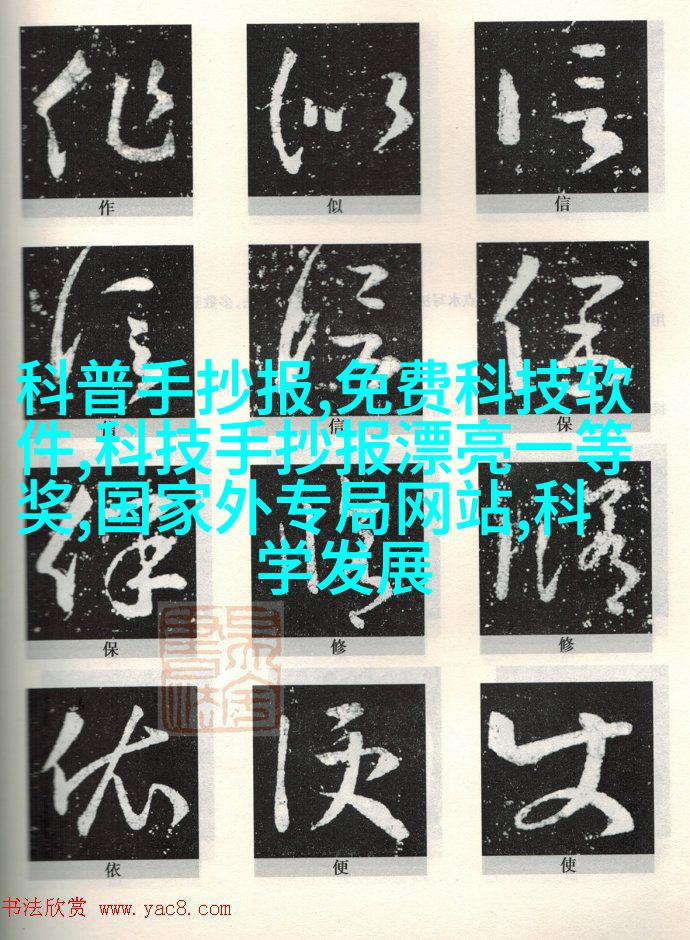 作 似 信
信 信 保
科普手抄报,免费科技软
件,科技手抄报漂亮一等
奖,国家外专局网站,科
学发展
保 修 修
依 便 使
书法欣赏 www.yac8.com